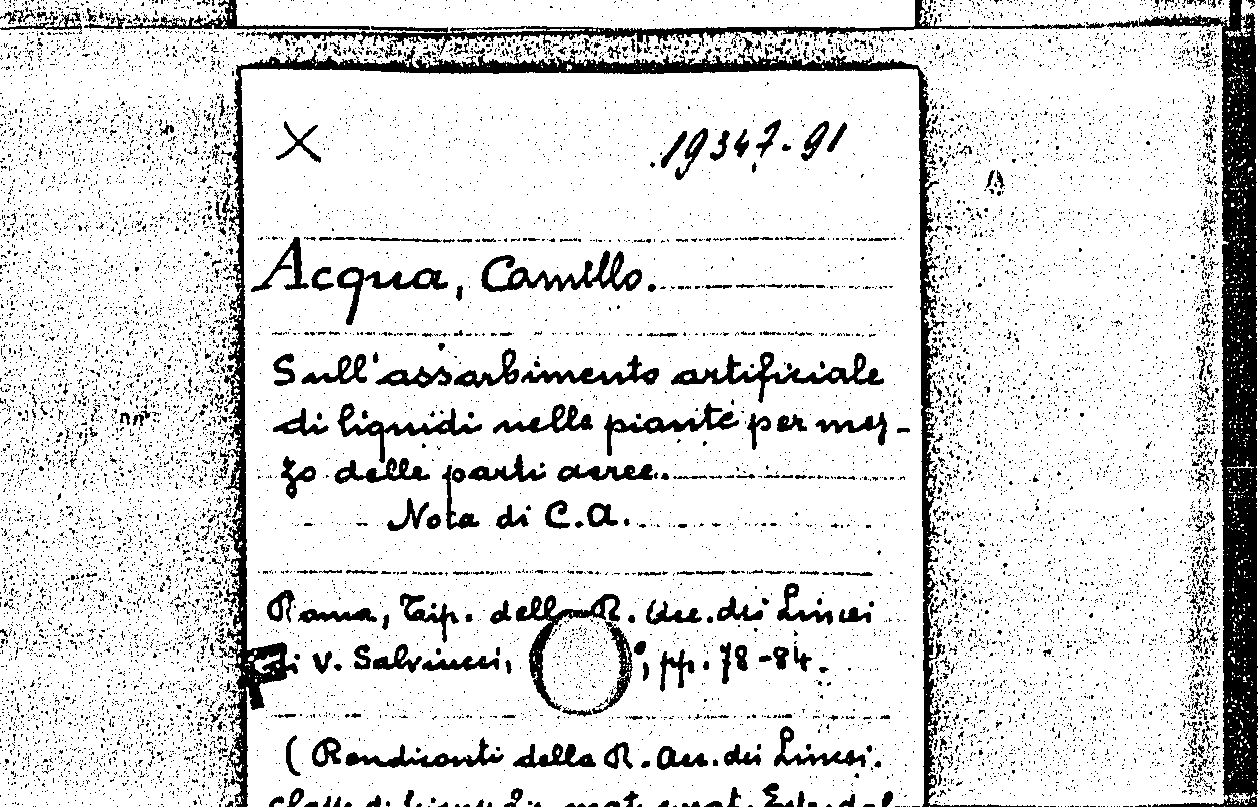 X 19347.91
Acqua, Camillo.
Sull'assorbimento artificiale
di liquidi nelle piante per mez-
zo delle parti aeree.
Nota di C.A.
Roma, Tip. della R. Acc. dei Lincei
di V. Salviucci, °, pp. 78-84.
( Rendiconti della R. Acc. dei Lincei.
Classe di Scienze fis. mat. e nat. Estr. dal